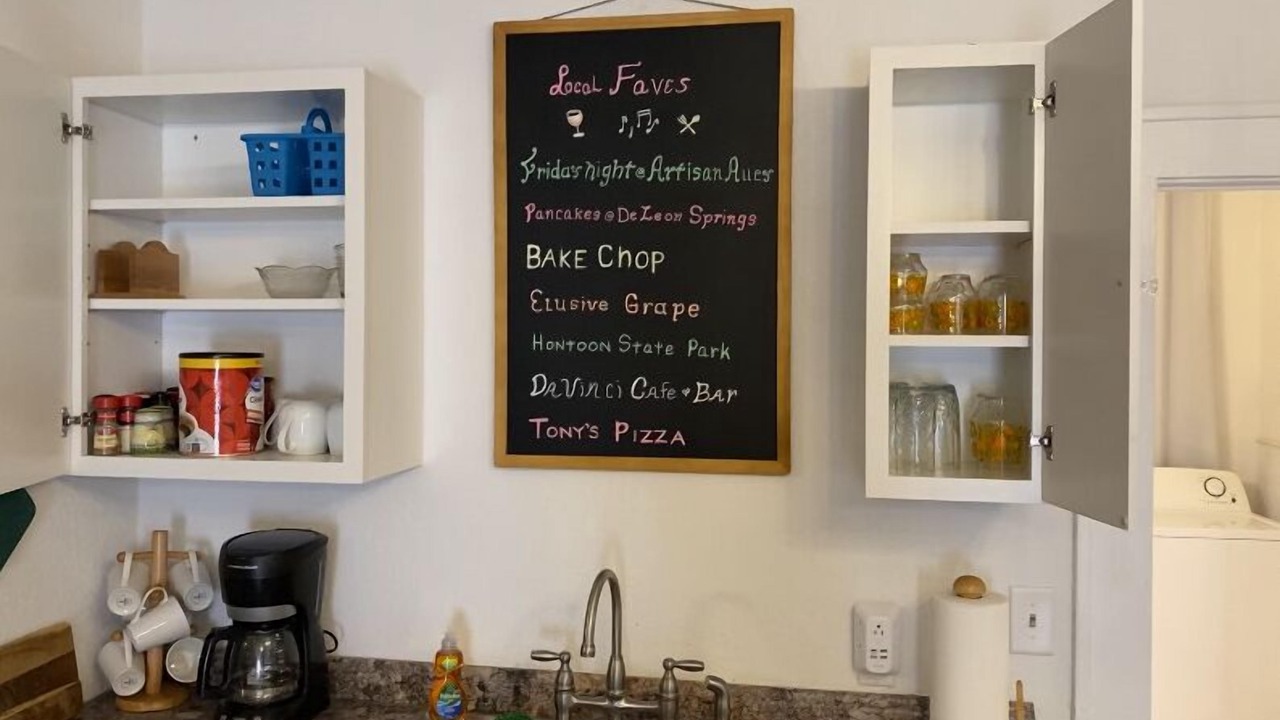 Local Faves
Friday night @ Artisan Alley
Pancakes @ De Leon Springs
BAKE CHOP
Elusive Grape
HONTOON STATE PARK
DaVinci Cafe & Bar
TONY'S PIZZA